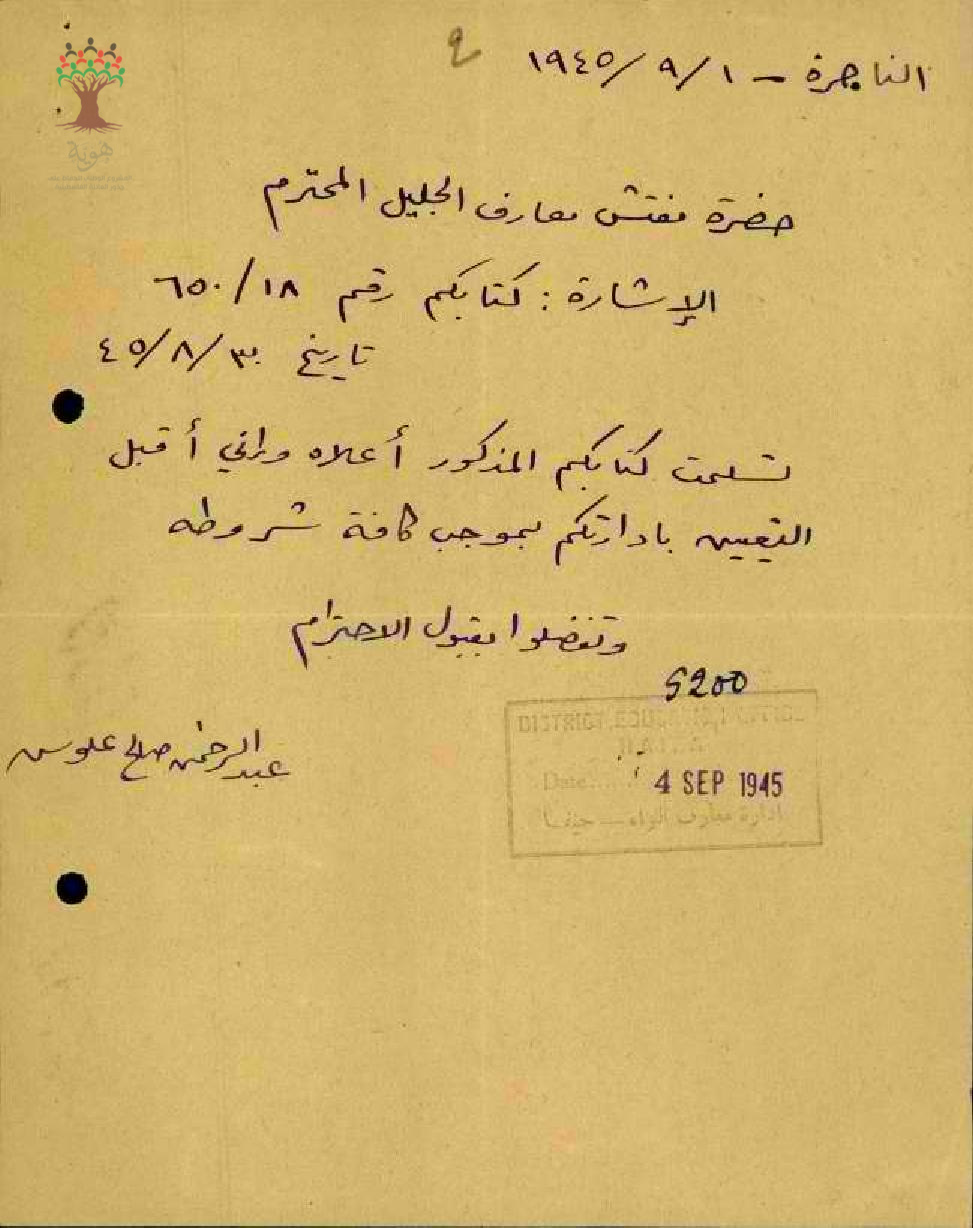 ٩
الناصرة - ١ / ٩ / ١٩٤٥
هوية
حضرة مفتش معارف الجليل المحترم
الإشارة : كتابكم رقم ١٨ / ٦٥٠
تاريخ ٣٠ / ٨ / ٤٥
تسلمت كتابكم المذكور أعلاه وإني أقبل
التعيين بادارتكم بموجب كافة شروطه
وتفضلوا بقبول الاحترام
5200
DISTRICT EDUCATION OFFICE
HAIFA
Date
4 SEP 1945
ادارة معارف اللواء – حيفا
عبد الرحمن صالح علوس